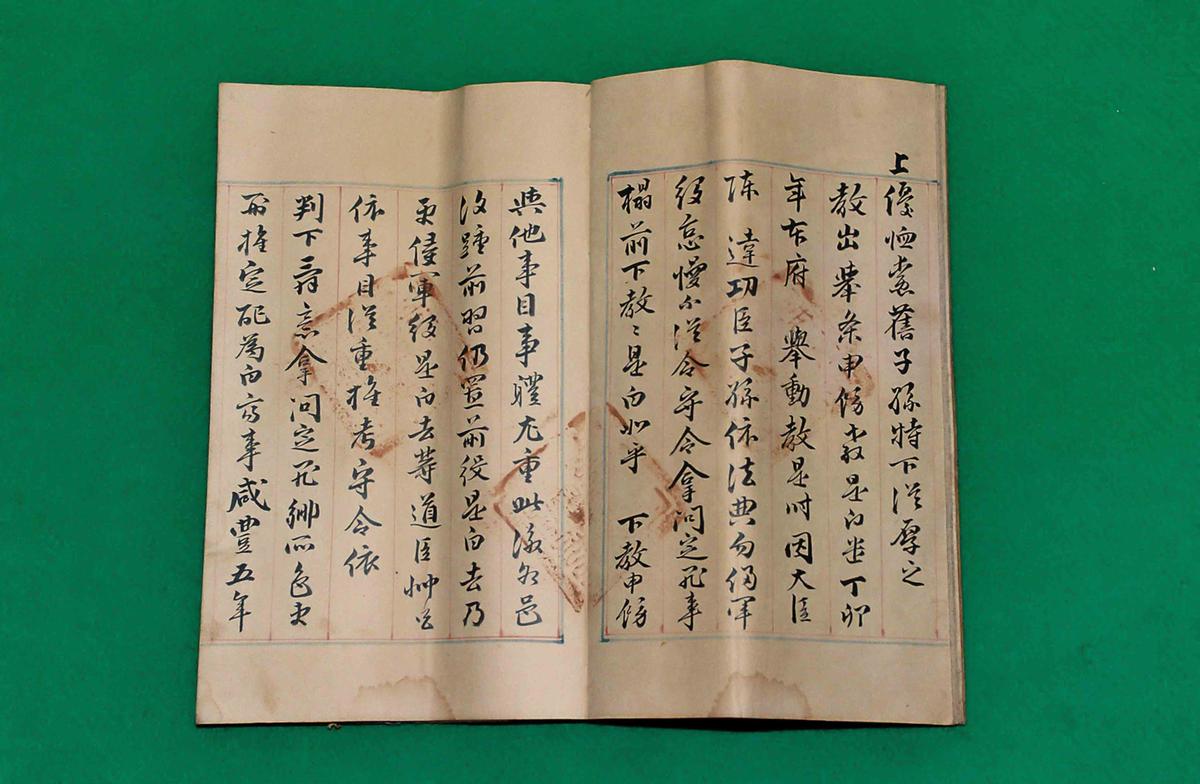 上優恤耆舊子孫特下從厚之
教出擧條申飭敎是白㫆丁卯
年本府 擧動敎是時因大臣
陳 達功臣子孫依法典勿侵軍
役怠慢不從令守令拿問定罪事
榻前下敎敎是白如乎 下敎申飭
與他事目事軆尤重此漵各邑
復踵前習仍置前役是白去乃
更侵軍役是白去等道臣
依事目從重推考守令依
判下 拿問定罪鄕所色吏
刑推定配爲白齊事咸豐五年